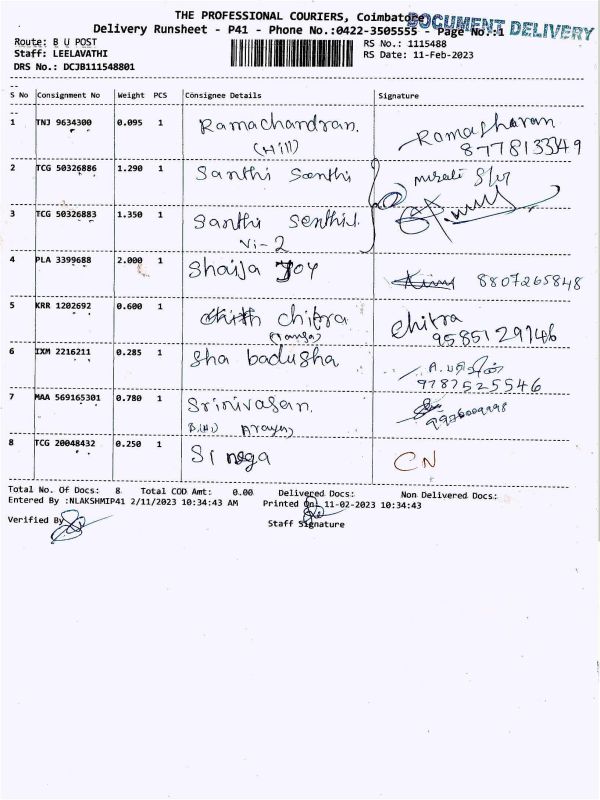 THE PROFESSIONAL COURIERS, Coimbatore
DOCUMENT DELIVERY
Delivery Runsheet - P41 - Phone No.:0422-3505555 - Page No.:1
Route: B U POST
RS No.: 1115488
Staff: LEELAVATHI
RS Date: 11-Feb-2023
DRS No.: DCJB111548801
S No Consignment No Weight PCS Consignee Details Signature
1 TNJ 9634300 0.095 1 Ramachandran.
(Hill)
8778133349
2 TCG 50326886 1.290 1 Santhi Santhi
3 TCG 50326883 1.350 1 Santhi Senthil.
Vi-2
4 PLA 3399688 2.000 1 Shaija Joy 8807265848
5 KRR 1202692 0.600 1 chitra chitra
9585129146
6 IXM 2216211 0.285 1 Sha badusha
9787525546
7 MAA 569165301 0.780 1 Srinivasan.
8 TCG 20048432 0.250 1 CN
Total No. Of Docs: 8 Total COD Amt: 0.00 Delivered Docs: Non Delivered Docs:
Entered By :NLAKSHMIP41 2/11/2023 10:34:43 AM Printed On: 11-02-2023 10:34:43
Verified By
Staff Signature